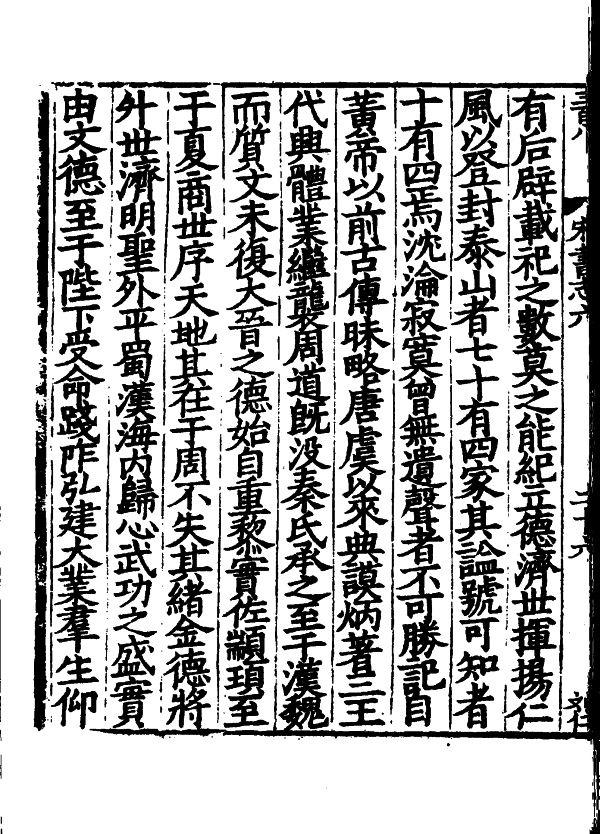 宋書志六
二十六
有后辟載祀之數莫之能紀立德濟世揮揚仁
風以登封泰山者七十有四家其謚號可知者
十有四焉沈淪寂寞曾無遺聲者不可勝記自
黃帝以前古傳昧略唐虞以來典謨炳著三王
代興體業繼襲周道旣没秦氏承之至于漢魏
而質文未復大晉之德始自重黎實佐顓頊至
于夏商世序天地其在于周不失其緒金德將
升世濟明聖外平蜀漢海内歸心武功之盛實
由文德至于陛下受命踐阼弘建大業羣生仰